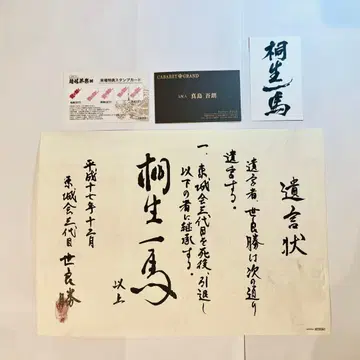 来場特典スタンプカード
CABARET GRAND
支配人 真島 吾朗
桐生一馬
遺言状
遺言者、世良勝は次の通り
遺言する。
一、東城会三代目を死後、引退し
以下の者に継承する。
桐生一馬
以上
平成十七年十二月
東城会三代目 世良 勝